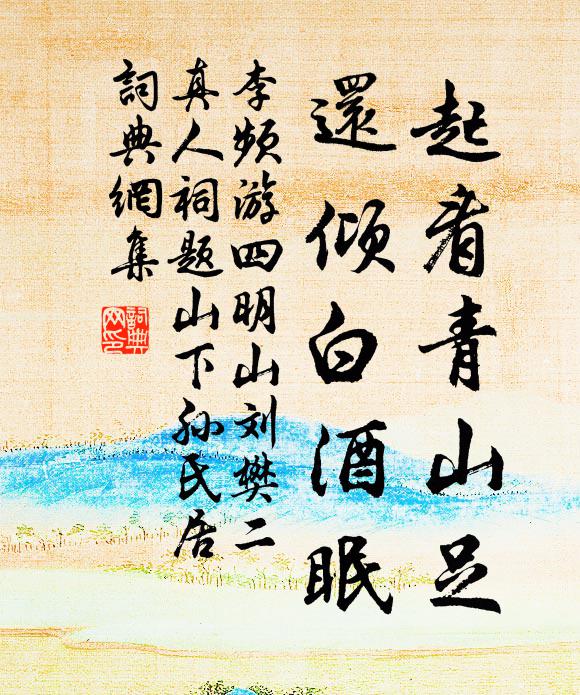 起看青山足
還傾白酒眠
李頻游四明山刘樊二
真人祠題山下孙氏居
詞典網集
詞典
网印